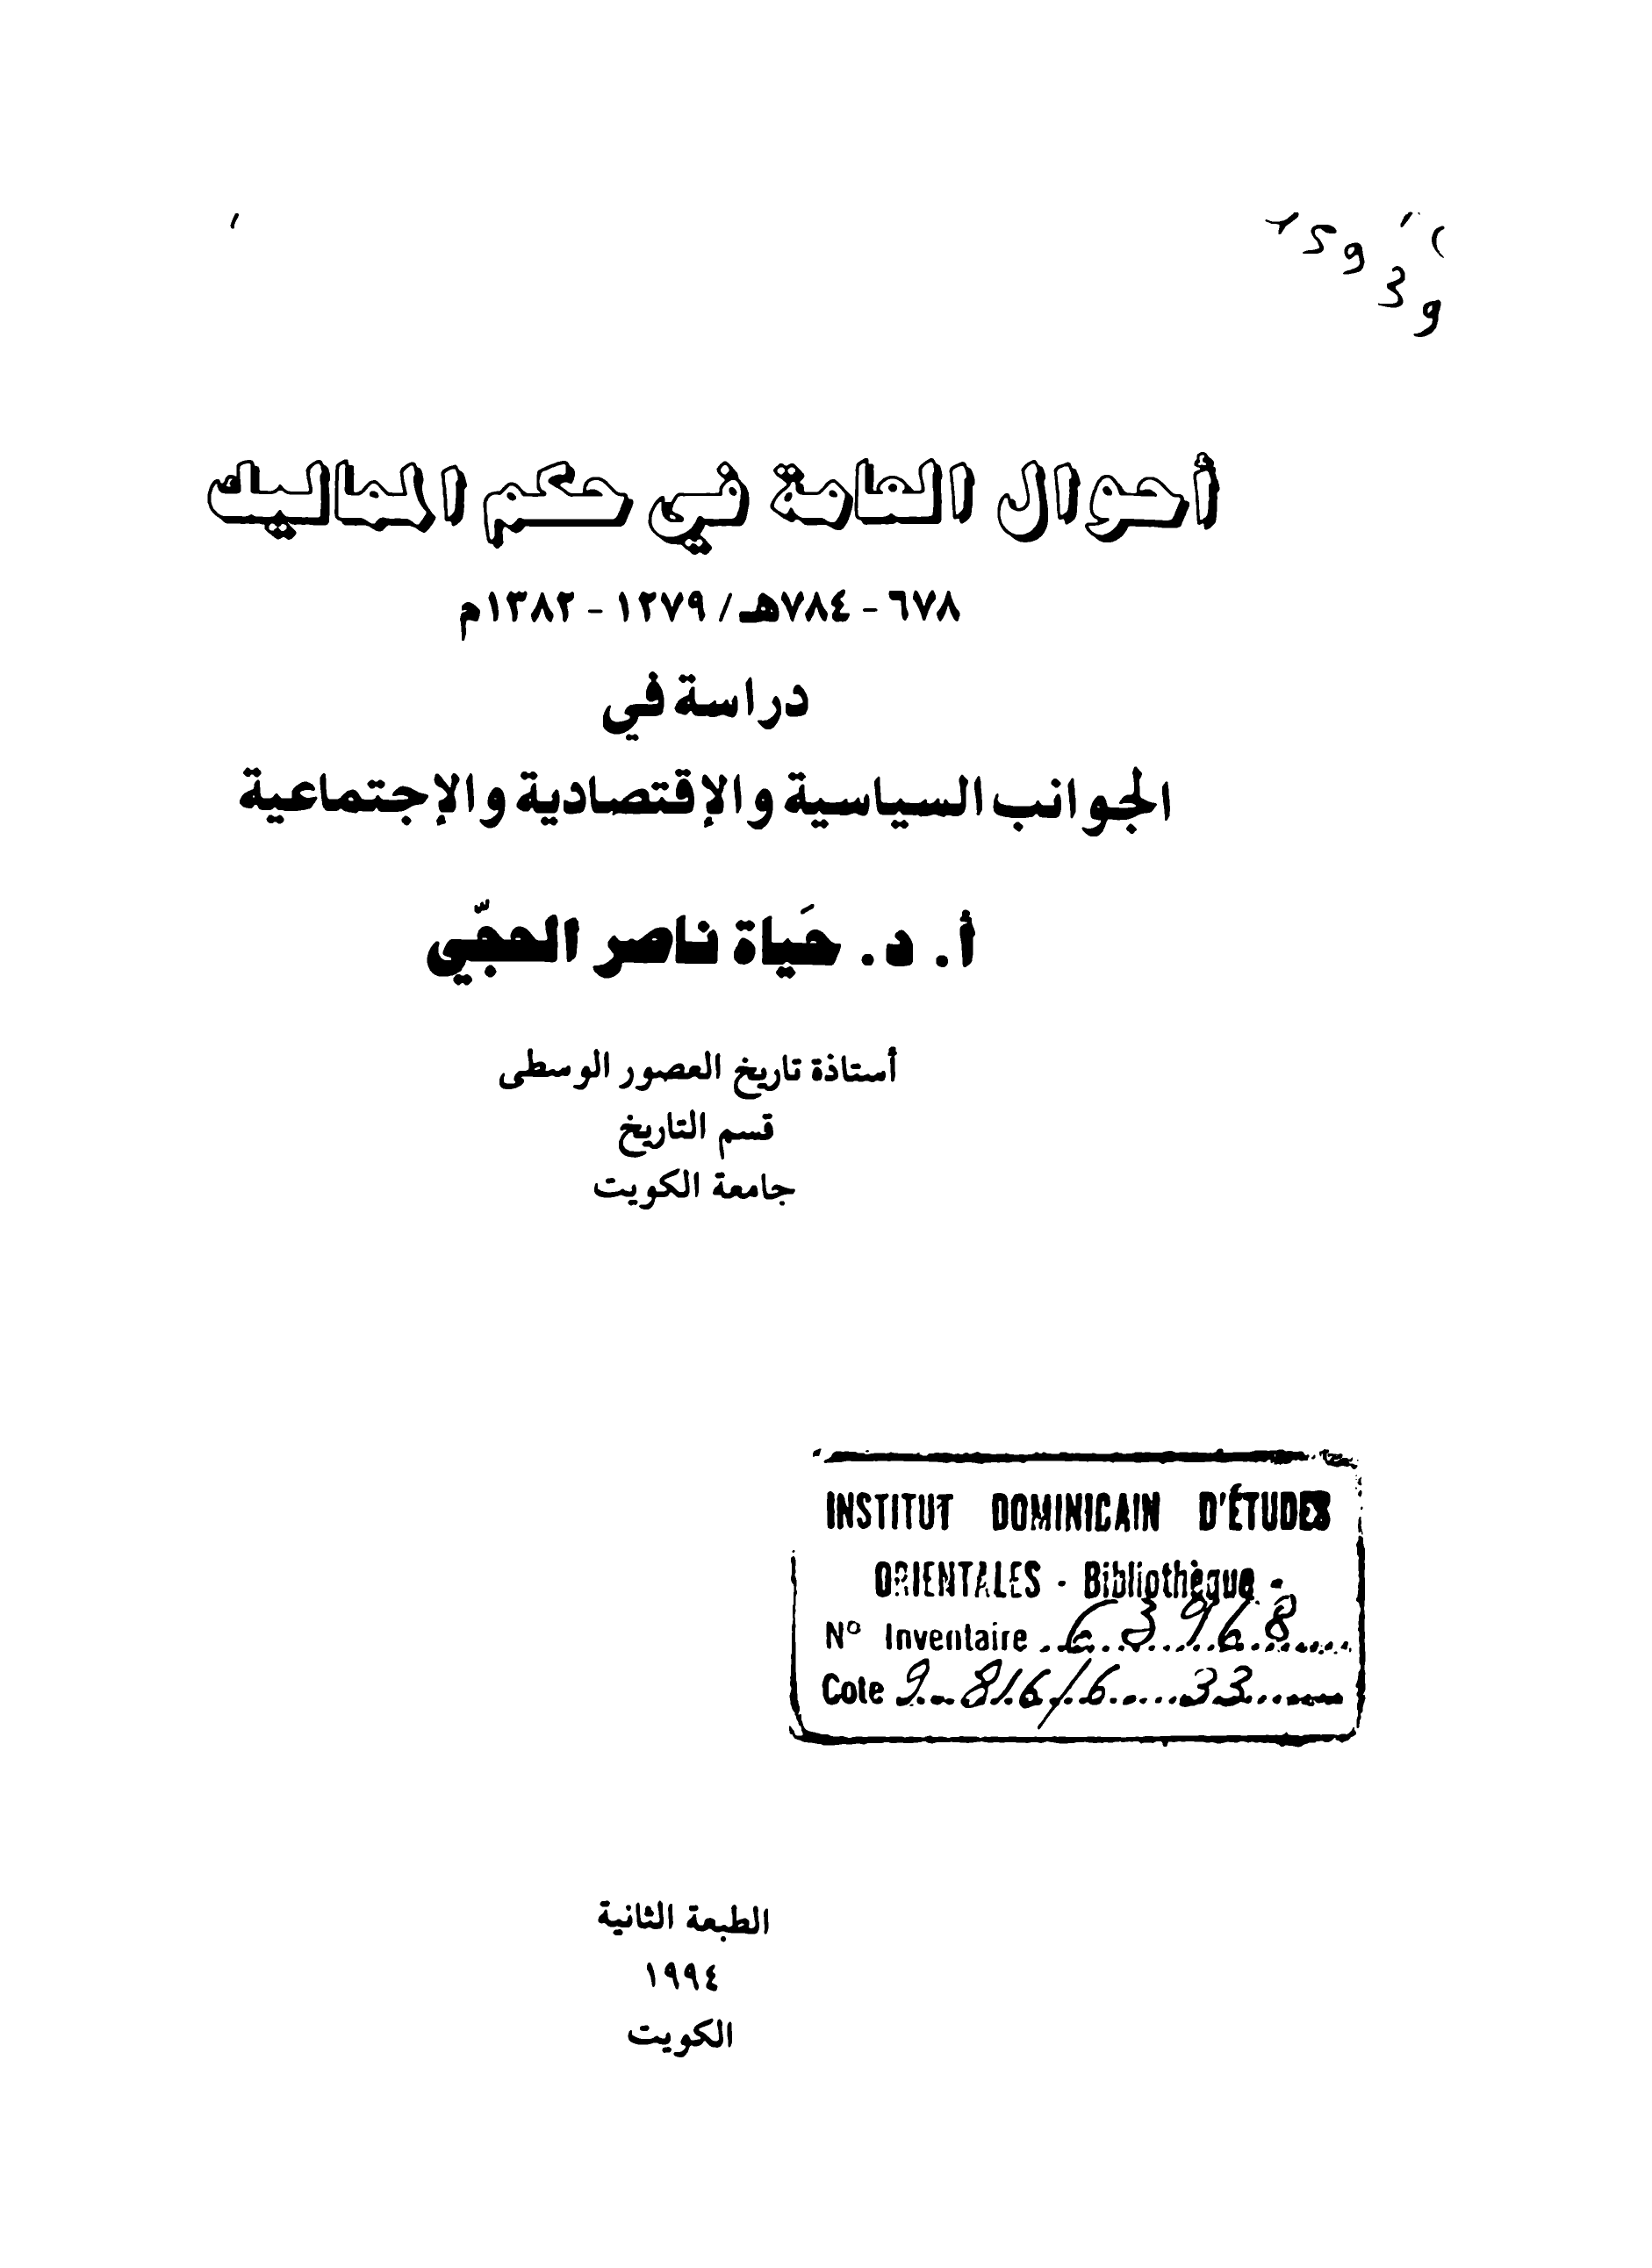 15939
أحوال العامة في حكم المماليك
٦٧٨ - ٧٨٤هـ / ١٢٧٩ - ١٣٨٢م
دراسة في
الجوانب السياسية والإقتصادية والإجتماعية
أ. د. حَياة ناصر الحجّي
أستاذة تاريخ العصور الوسطى
قسم التاريخ
جامعة الكويت
INSTITUT DOMINICAIN D'ÉTUDES
ORIENTALES - Bibliothèque -
Nº Inventaire
Cote 9-816/6 33
الطبعة الثانية
١٩٩٤
الكويت